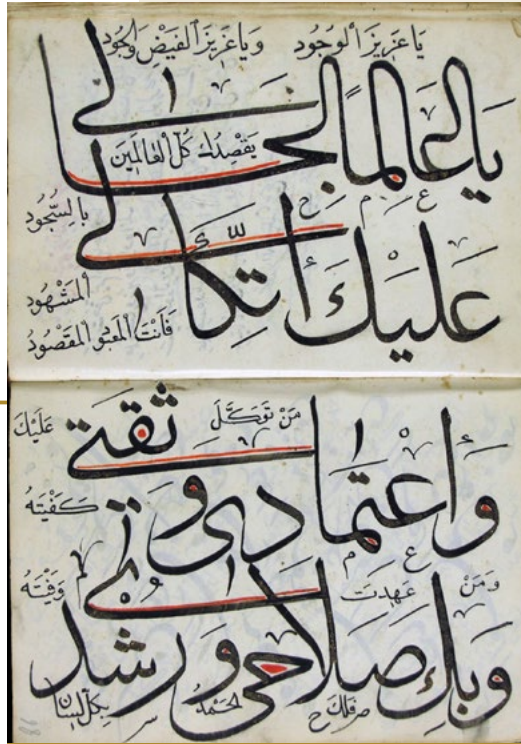 يَا عَزِيزَ ٱلْوُجُودِ وَيَا عَزِيزَ ٱلْفَيْضِ وَالْجُودِ
يَا عَالِمًا بِحَالِي
يَقْصِدُكَ كُلُّ الْعَالَمِينَ بِالسُّجُودِ
عَلَيْكَ أَتِّكَالِي
الْمَشْهُود
فَأَنْتَ الْمَعْبُودُ الْمَقْصُودُ
مَنْ تَوَكَّلَ عَلَيْكَ
وَاعْتِمَادِي وَثِقَتِي
كَفَيْتَهُ
وَمَنْ عَهِدتَ وَفَيْتَهُ
وَبِكَ صَلَاحِي وَرُشْدِي
فلك الحمد بكل لسان